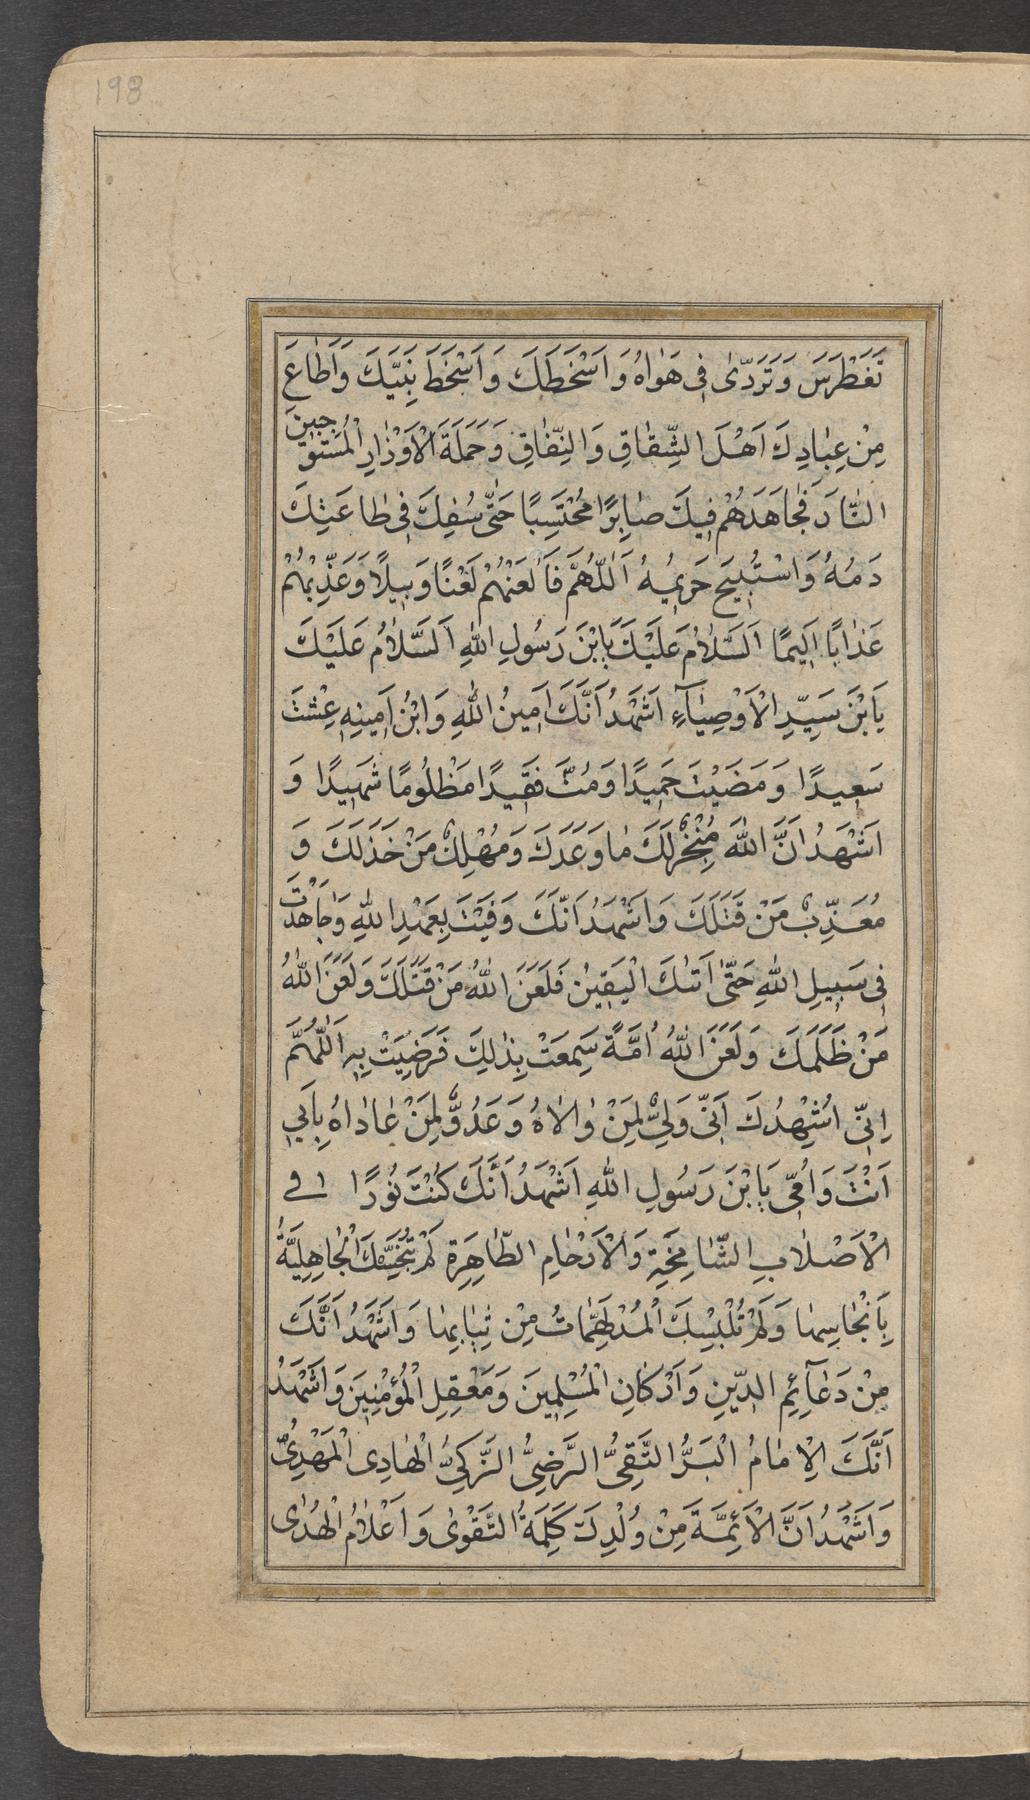 198
تَغَطْرَسَ وَتَرَدّٰى فِى هَوٰاهُ وَ اَسْخَطَكَ وَ اَسْخَطَ نَبِيَّكَ وَاَطٰاعَ
مِنْ عِبٰادِكَ اَهْلَ الشِّقٰاقِ وَ النِّفٰاقِ وَحَمَلَةَ الْاَوْزٰارِ الْمُسْتَوْجِبِينَ
النّٰارَ فَجٰاهَدَهُمْ فِيكَ صٰابِرًا مُحْتَسِبًا حَتّٰى سُفِكَ فِى طٰاعَتِكَ
دَمُهُ وَاسْتُبِيحَ حَرِيمُهُ اَللّٰهُمَّ فَالْعَنْهُمْ لَعْنًا وَبِيلًا وَعَذِّبْهُمْ
عَذٰابًا اَلِيمًا اَلسَّلٰامُ عَلَيْكَ يَابْنَ رَسُولِ اللّٰهِ اَلسَّلٰامُ عَلَيْكَ
يَابْنَ سَيِّدِ الْاَوْصِيٰآءِ اَشْهَدُ اَنَّكَ اَمِينُ اللّٰهِ وَابْنُ اَمِينِهِ عِشْتَ
سَعِيدًا وَ مَضَيْتَ حَمِيدًا وَمُتَّ فَقِيدًا مَظْلُومًا شَهِيدًا وَ
اَشْهَدُ اَنَّ اللّٰهَ مُنْجِزٌ لَكَ مٰا وَعَدَكَ وَ مُهْلِكٌ مَنْ خَذَلَكَ وَ
مُعَذِّبٌ مَنْ قَتَلَكَ وَاَشْهَدُ اَنَّكَ وَفَيْتَ بِعَهْدِ اللّٰهِ وَجٰاهَدْتَ
فِى سَبِيلِ اللّٰهِ حَتّٰى اَتٰىكَ الْيَقِينُ فَلَعَنَ اللّٰهُ مَنْ قَتَلَكَ وَلَعَنَ اللّٰهُ
مَنْ ظَلَمَكَ وَ لَعَنَ اللّٰهُ اُمَّةً سَمِعَتْ بِذٰلِكَ فَرَضِيَتْ بِهِ اَللّٰهُمَّ
اِنِّى اُشْهِدُكَ اَنِّى وَلِىٌّ لِمَنْ وٰالٰاهُ وَ عَدُوٌّ لِمَنْ عٰادٰاهُ بِاَبِى
اَنْتَ وَاُمِّى يَابْنَ رَسُولِ اللّٰهِ اَشْهَدُ اَنَّكَ كُنْتَ نُورًا فِى
الْاَصْلٰابِ الشّٰامِخَةِ وَالْاَرْحٰامِ الطّٰاهِرَةِ لَمْ تُنَجِّسْكَ الْجٰاهِلِيَّةُ
بِاَنْجٰاسِهٰا وَلَمْ تُلْبِسْكَ الْمُدْلَهِمّٰاتُ مِنْ ثِيٰابِهٰا وَ اَشْهَدُ اَنَّكَ
مِنْ دَعٰآئِمِ الدِّينِ وَ اَرْكٰانِ الْمُسْلِمِينَ وَمَعْقِلِ الْمُؤْمِنِينَ وَاَشْهَدُ
اَنَّكَ الْاِمٰامُ الْبَرُّ التَّقِىُّ الرَّضِىُّ الزَّكِىُّ الْهٰادِى الْمَهْدِىُّ
وَ اَشْهَدُ اَنَّ الْاَئِمَّةَ مِنْ وُلْدِكَ كَلِمَةُ التَّقْوٰى وَ اَعْلٰامُ الْهُدٰى